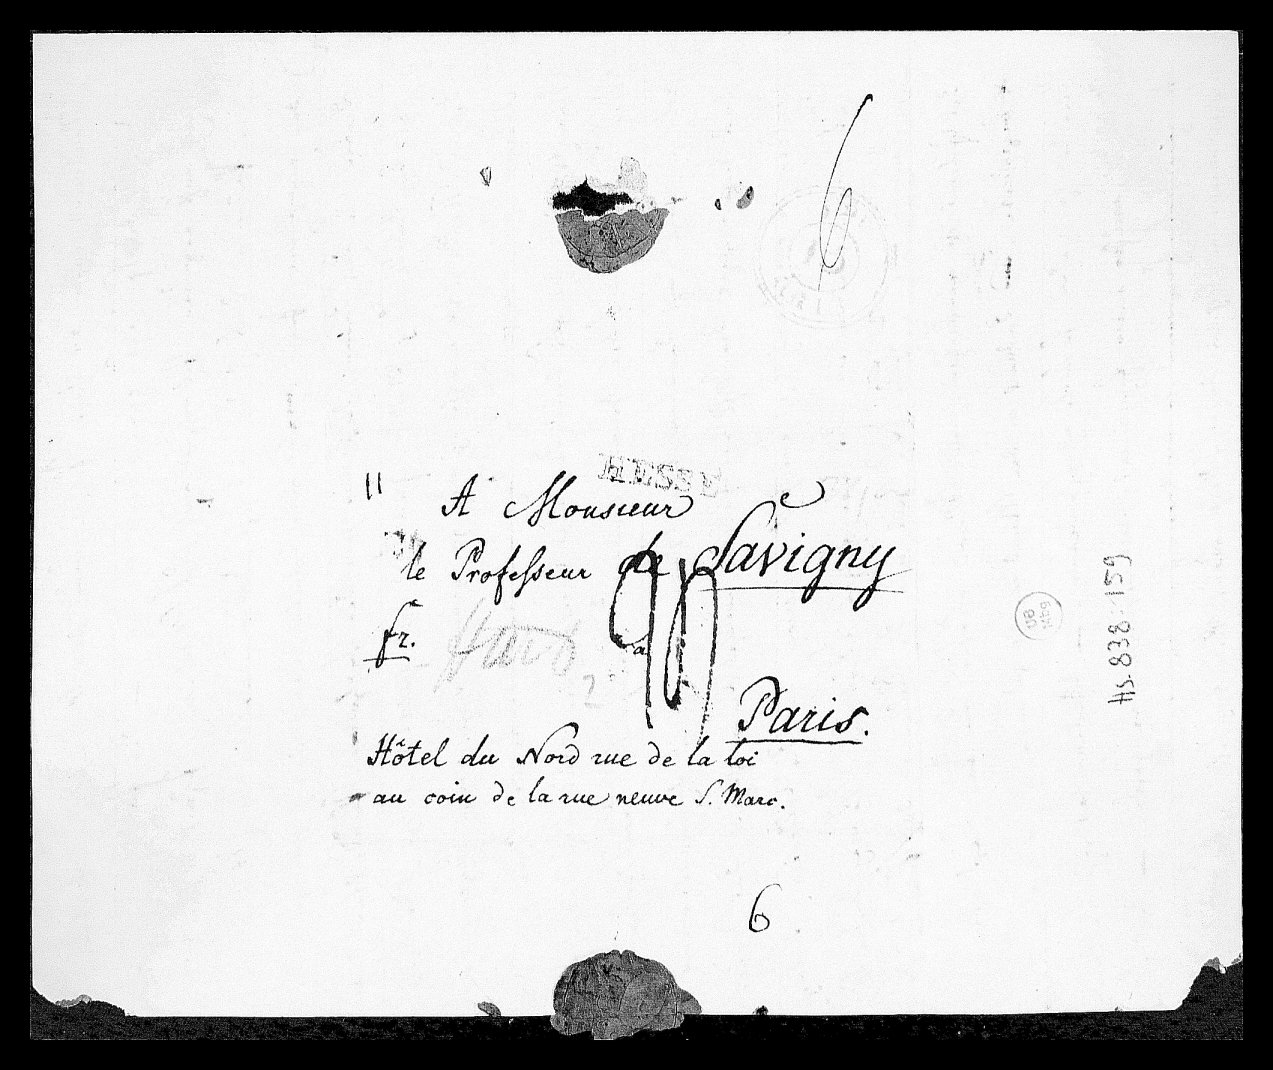 6
HESSE
A Monsieur
le Professeur de Savigny
fr.
a
Paris.
Hôtel du Nord rue de la loi
au coin de la rue neuve S. Marc.
6
Hs. 838:159
UB